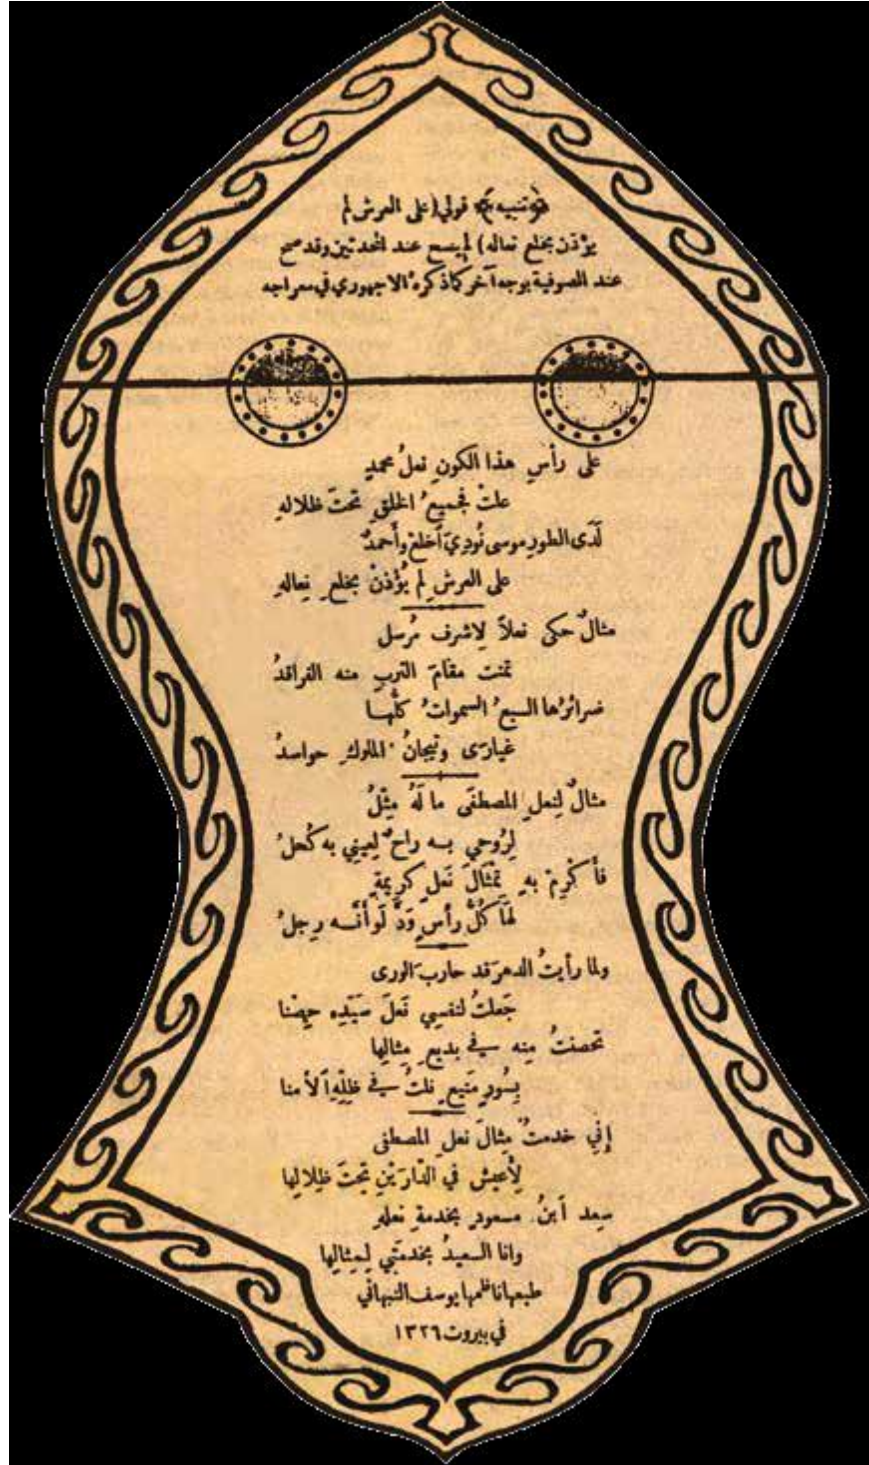 ﴿تنبيه﴾ قولي (على العرش لم
يؤذن بخلع نعاله) لم يصح عند المحدثين وقد صح
عند الصوفية بوجه آخر كما ذكره الاجهوري في معراجه
على رأسِ هذا الكونِ نعلُ محمدٍ
علتْ فجميعُ الخلقِ تحتَ ظلالهِ
لَدَى الطورِ موسى نُودِيَ اَخلعْ وأحمدٌ
على العرشِ لم يُؤْذَنْ بخلعِ نِعالهِ
مثالٌ حكى نعلاً لِاشرف مُرسل
تمنت مقامَ التربِ منه الفراقدُ
ضرائرُها السبعُ السمواتُ كلُّها
غيارَى وتيجانُ الملوكِ حواسدُ
مثالٌ لِنعلِ المصطفَى ما لَهُ مِثْلُ
لِرُوحيِ به راحٌ لِعيني به كُحلُ
فأكْرِمْ بهِ تمثَالَ نَعلٍ كريمةٍ
لهَا كُلُّ رأسٍ وَدَّ لَو أنَّه رِجلُ
ولما رأيتُ الدهرَ قد حاربَ الورى
جَعلتُ لنفسيِ نَعلَ سَيّدِه حِصْنا
تحصنتُ مِنه في بديعِ مِثالِها
بِسُورٍ مَنيعٍ نلتُ في ظِلِّهِ اَلأمنا
إنّي خدمتُ مِثالَ نعلِ المصطفى
لِأعيشَ في الدَّارَيْنِ تحتَ ظِلالِها
سعِد اَبنُ مسعودٍ بخدمةِ نعلهِ
وانا السعيدُ بخدمَتي لِمِثالِها
طبعها ناظمها يوسف النبهاني
في بيروت ١٣٢٦